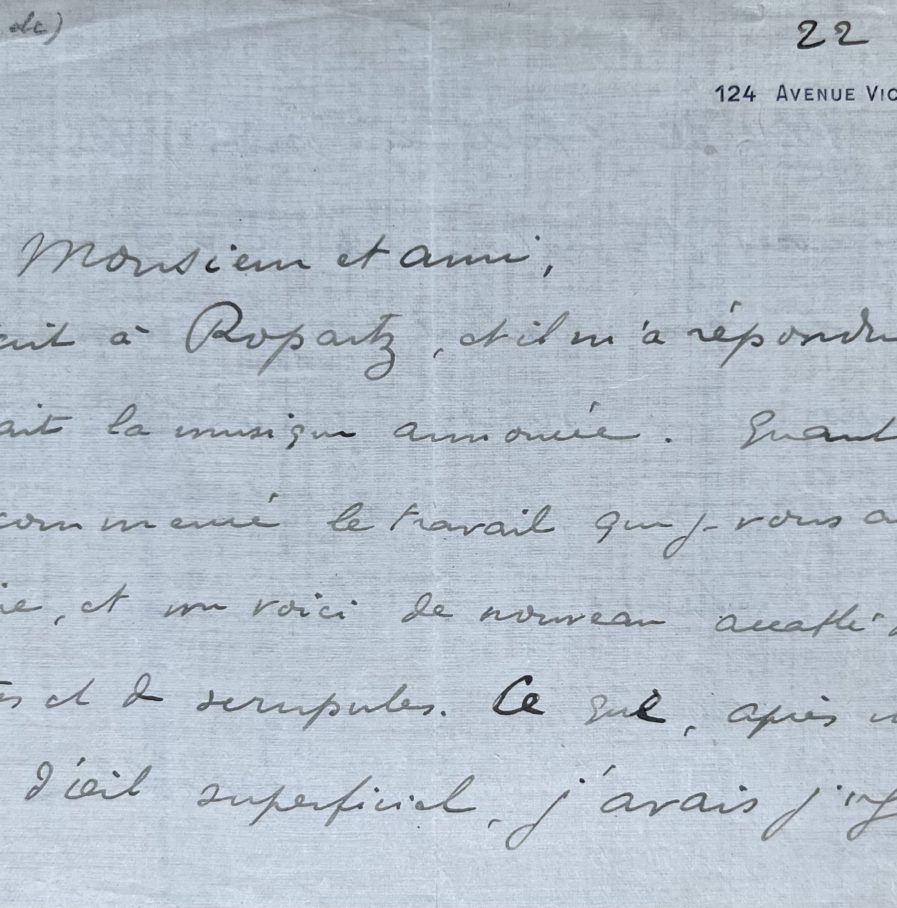 de)
22
124 AVENUE VIC
Monsieur et ami,
à Ropartz, et il m'a répondu
ait la musique annoncée. Quant
commencé le travail que je vous a
ie, et me voici de nouveau accablé
et de scrupules. Ce que, après u
d'œil superficiel, j'avais jug